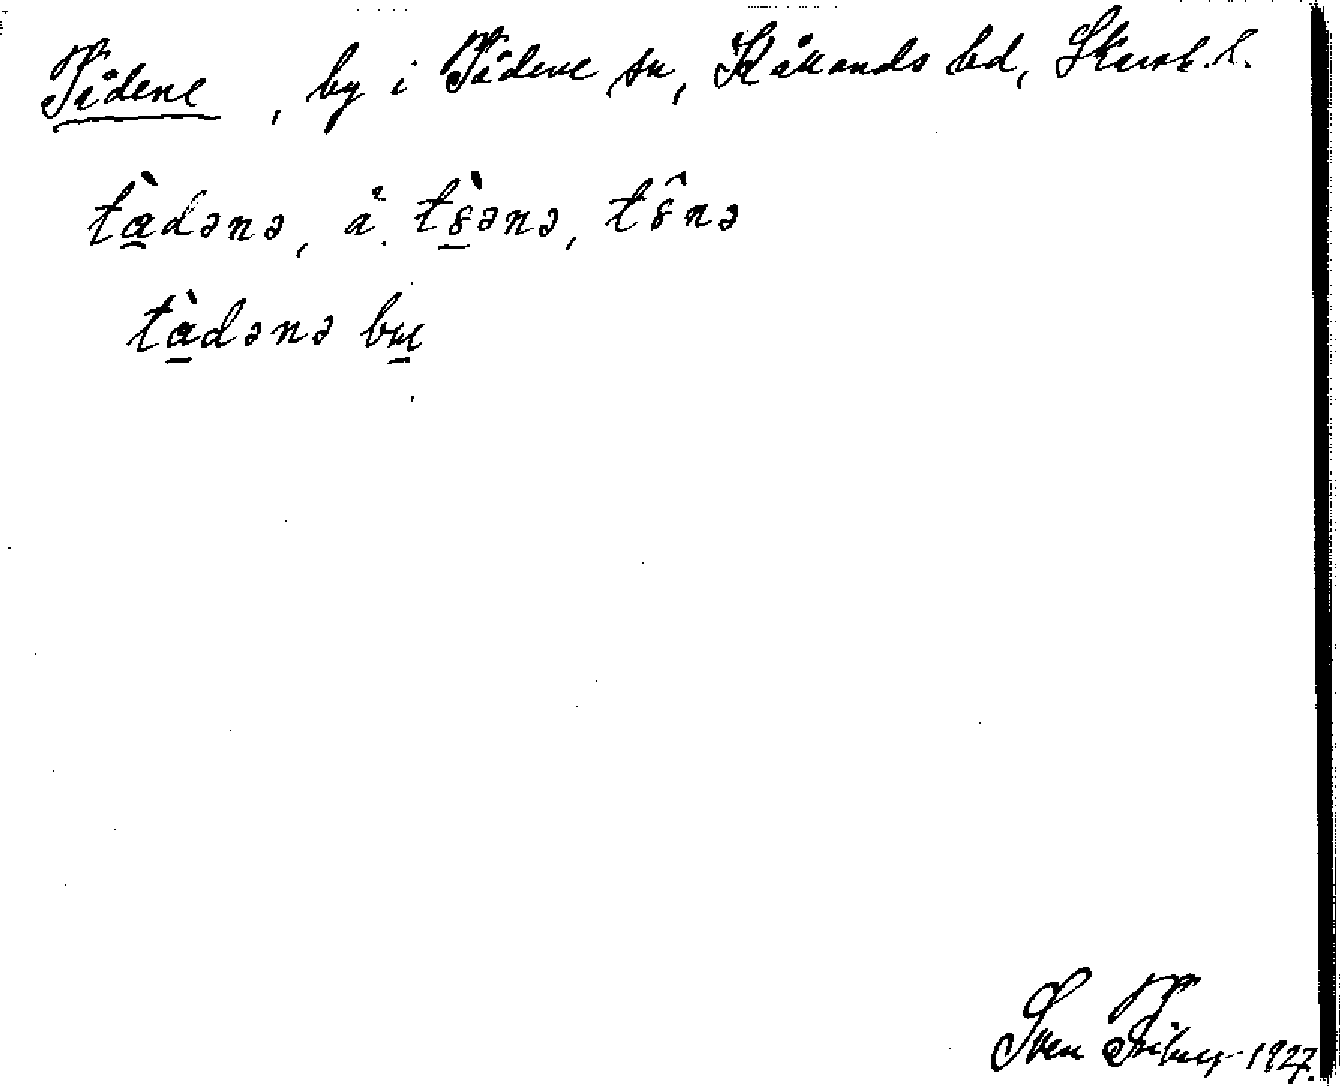 Tådene, by i Tådene sn, Kållands hd, Skarab. l.
tàdənə, å. tèənə, tênə
tàdənə by
Sven 1927.